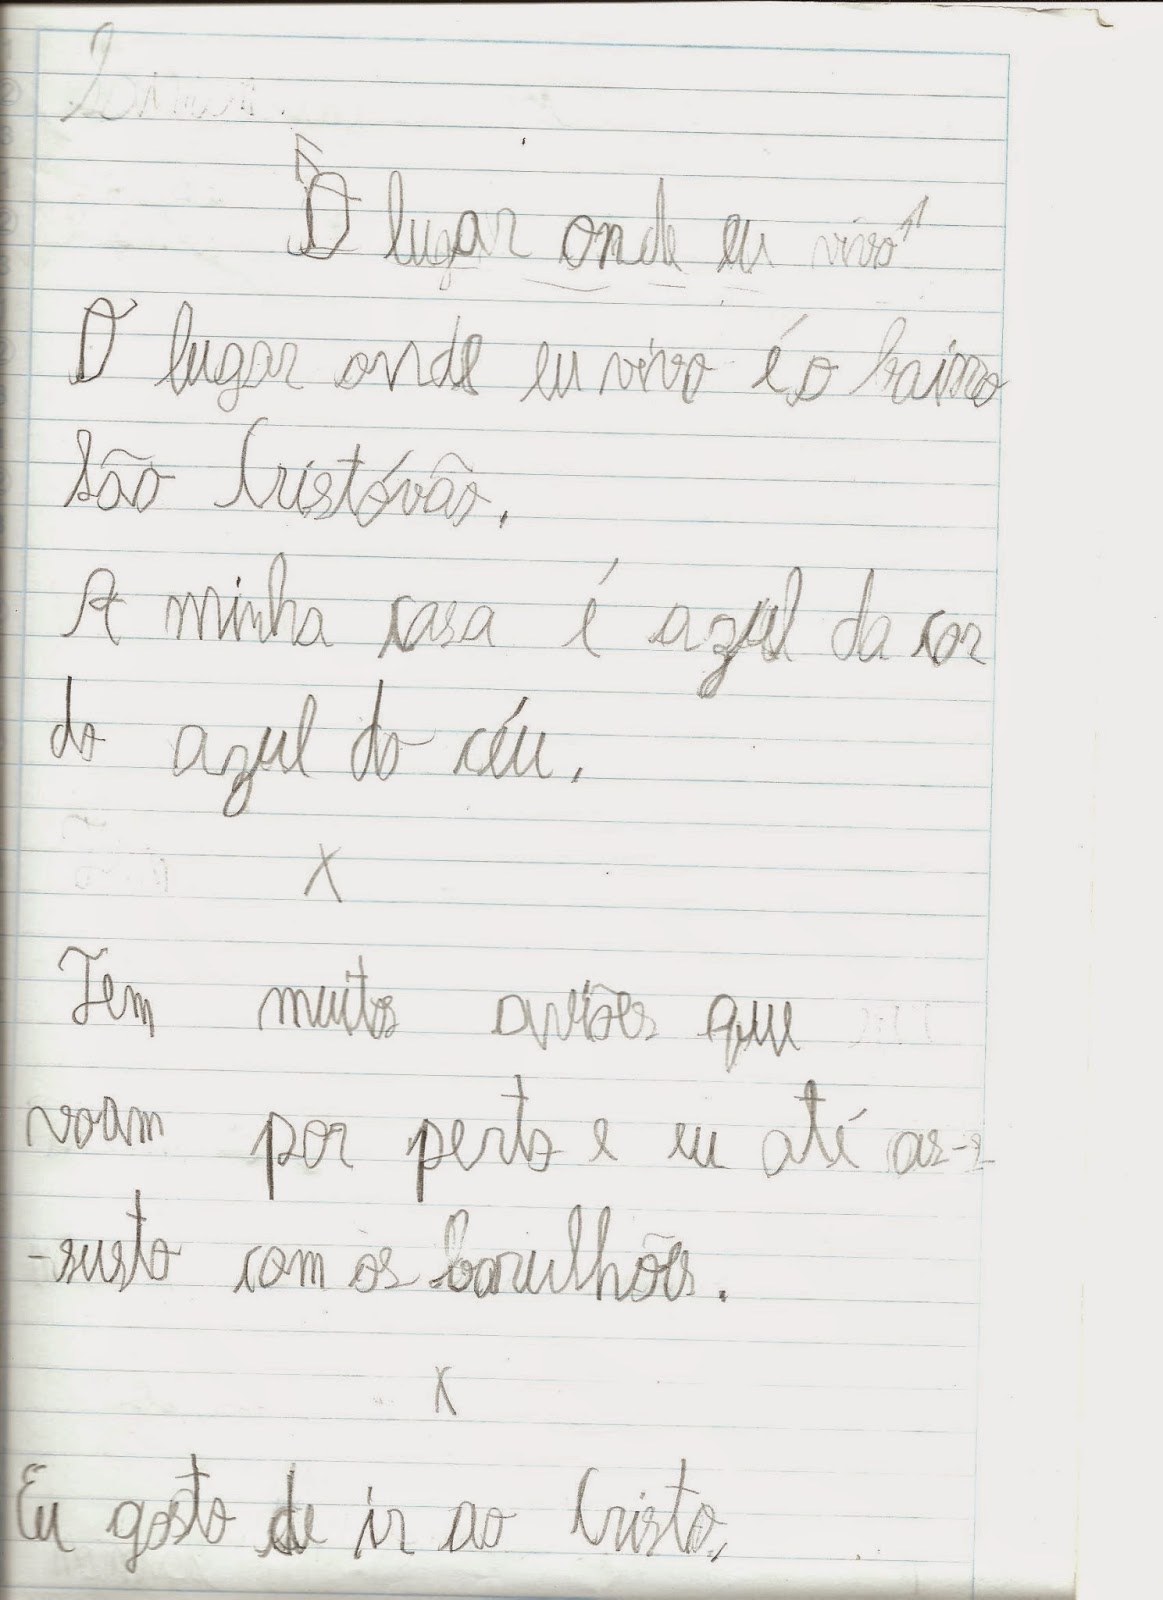 O lugar onde eu vivo
O lugar onde eu vivo é o bairro
São Cristóvão.
A minha casa é azul da cor
do azul do céu.
X
Tem muitos aviões que
voam por perto e eu até as-
-susto com os barulhões.
X
Eu gosto de ir ao Cristo,